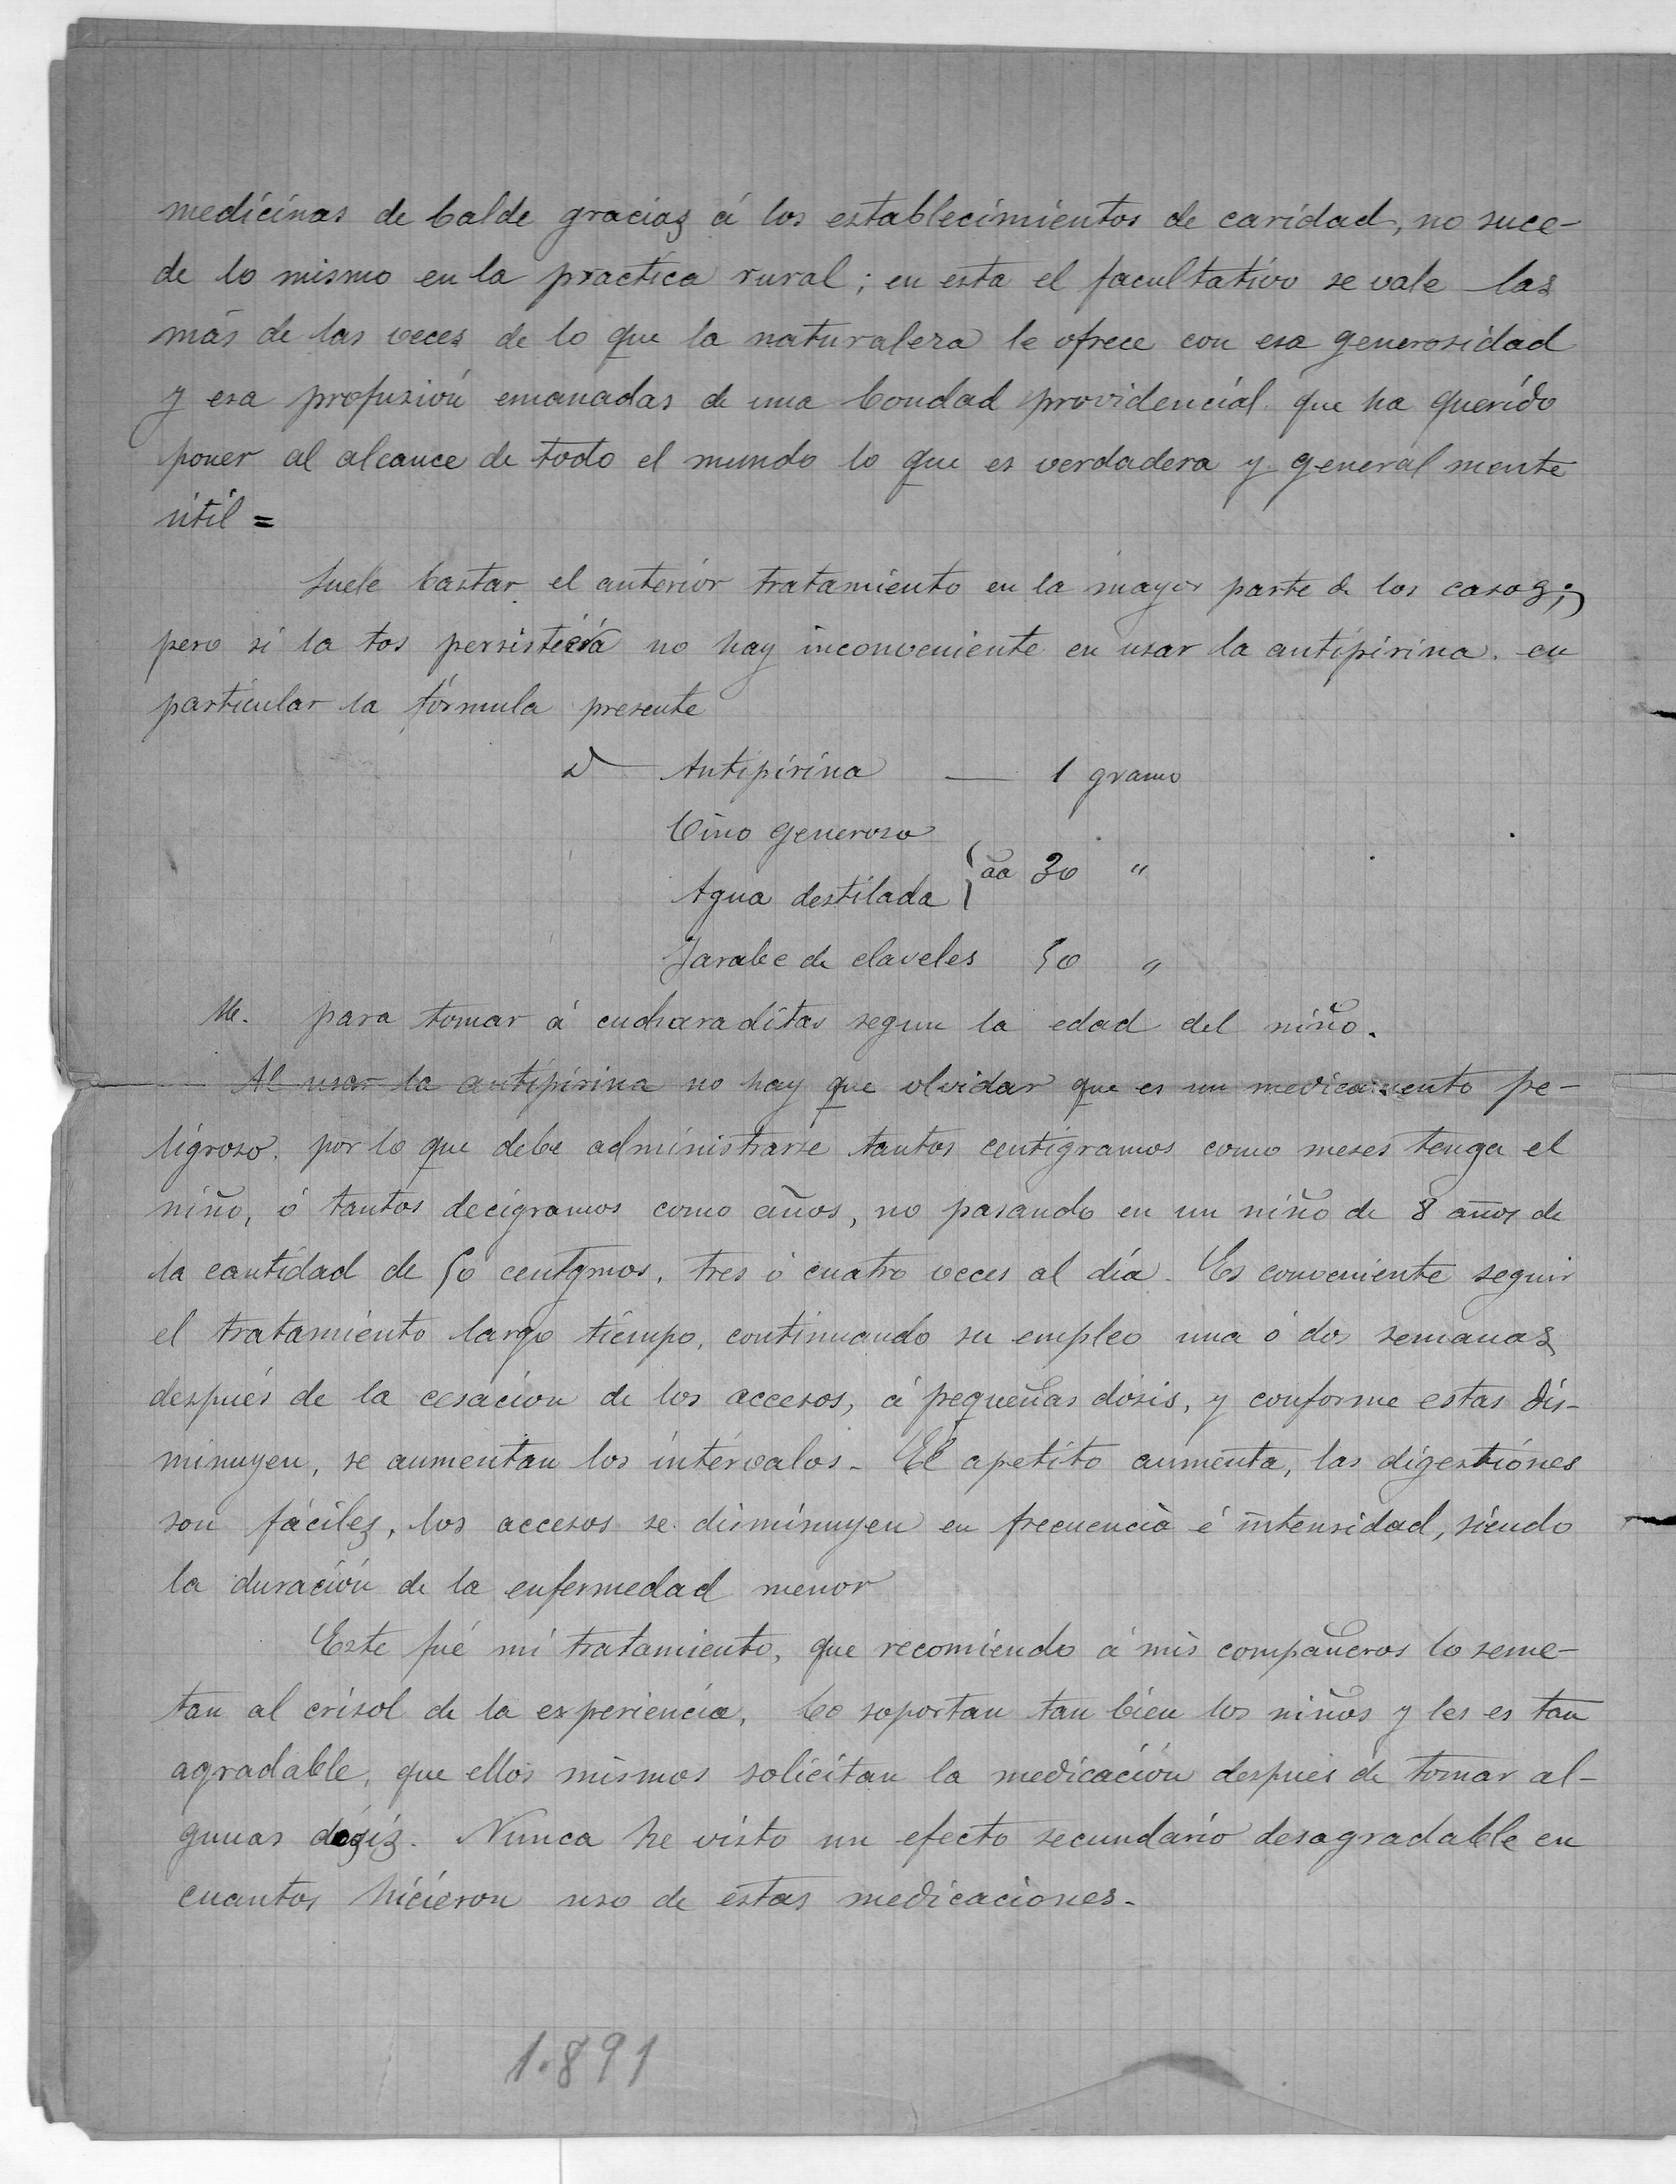 medicinas de balde gracias á los establecimientos de caridad, no suce-
de lo mismo en la practica rural; en esta el facultativo se vale las
más de las veces de lo que la naturaleza le ofrece con esa generosidad
y esa profusión emanadas de una bondad providencial que ha querido
poner al alcance de todo el mundo lo que es verdadera y general mente
útil =
Suele bastar el anterior tratamiento en la mayor parte de los casos;
pero si la tos persistiera no hay inconveniente en usar la antipirina. en
particular la fórmula presente
Antipirina — 1 gramo
Vino generoso
Agua destilada } aa 30 "
Jarabe de claveles 50 "
M. para tomar á cucharaditas segun la edad del niño.
Al usar la antipirina no hay que olvidar que es un medicamento pe-
ligroso. por lo que debe administrarse tantos centigramos como meses tenga el
niño, ó tantos decigramos como años, no pasando en un niño de 8 años de
la cantidad de 50 centgmos, tres ó cuatro veces al día. Es conveniente seguir
el tratamiento largo tiempo, continuando su empleo una ó dos semanas
después de la cesacion de los accesos, á pequeñas dósis, y conforme estas dis-
minuyen, se aumentan los intérvalos. El apetito aumenta, las digestiónes
son fáciles, los accesos se disminuyen en frecuencia é intensidad, siendo
la duración de la enfermedad menor
Este fué mi tratamiento, que recomiendo á mis compañeros lo seme-
tan al crisol de la experiencia. Lo soportan tan bien los niños y les es tan
agradable, que ellos mismos solicitan la medicación despues de tomar al-
gunas dósis. Nunca he visto un efecto secundario desagradable en
cuantos hicieron uso de estas medicaciones.
1.891